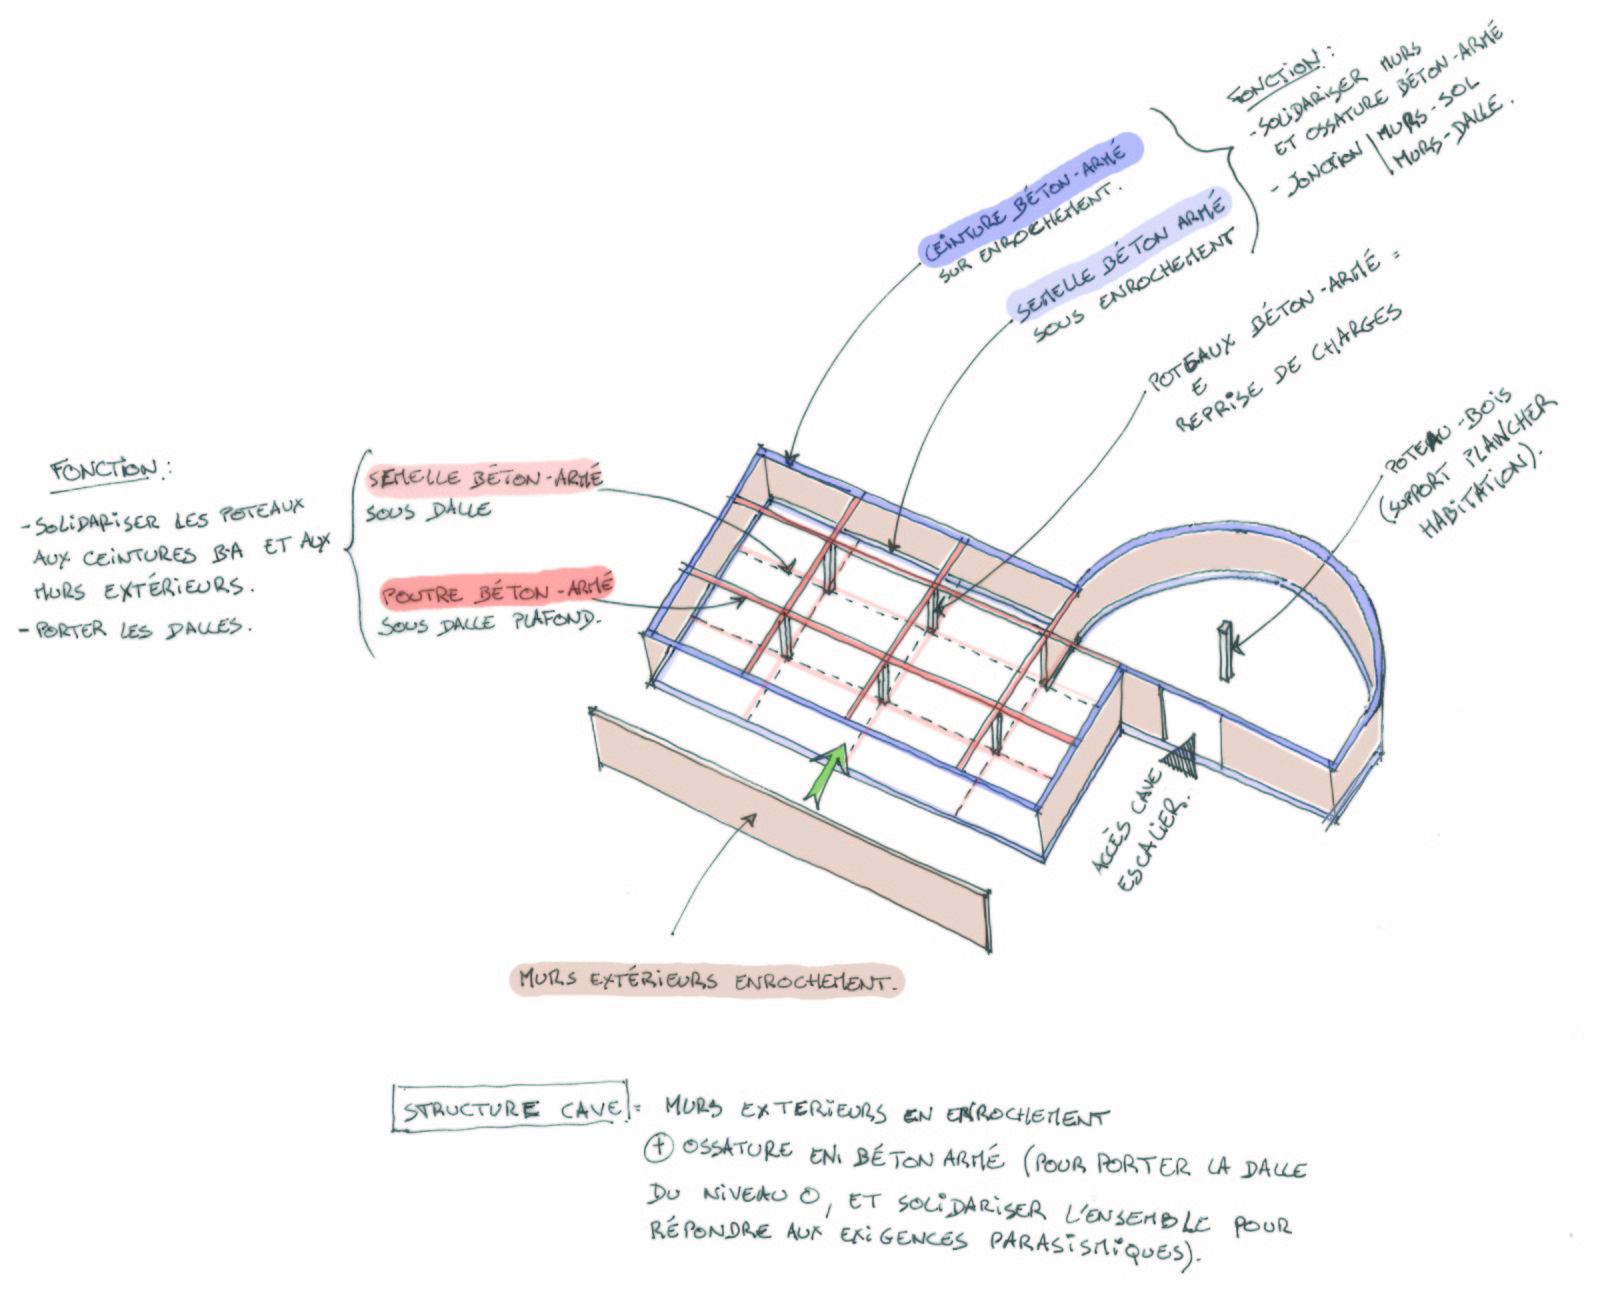 FONCTION :
- SOLIDARISER MURS
ET OSSATURE BÉTON-ARMÉ
- JONCTION | MURS-SOL
MURS-DALLE.
CEINTURE BÉTON-ARMÉ
SUR ENROCHEMENT.
SEMELLE BÉTON ARMÉ
SOUS ENROCHEMENT
POTEAUX BÉTON-ARMÉ =
E
REPRISE DE CHARGES
POTEAU-BOIS
(SUPPORT PLANCHER
HABITATION).
FONCTION :
- SOLIDARISER LES POTEAUX
AUX CEINTURES B.A ET AUX
MURS EXTÉRIEURS.
- PORTER LES DALLES.
SEMELLE BÉTON-ARMÉ
SOUS DALLE
POUTRE BÉTON-ARMÉ
SOUS DALLE PLAFOND.
ACCÈS CAVE
ESCALIER.
MURS EXTÉRIEURS ENROCHEMENT.
STRUCTURE CAVE = MURS EXTERIEURS EN ENROCHEMENT
+ OSSATURE EN BÉTON ARMÉ (POUR PORTER LA DALLE
DU NIVEAU 0, ET SOLIDARISER L'ENSEMBLE POUR
RÉPONDRE AUX EXIGENCES PARASISMIQUES).